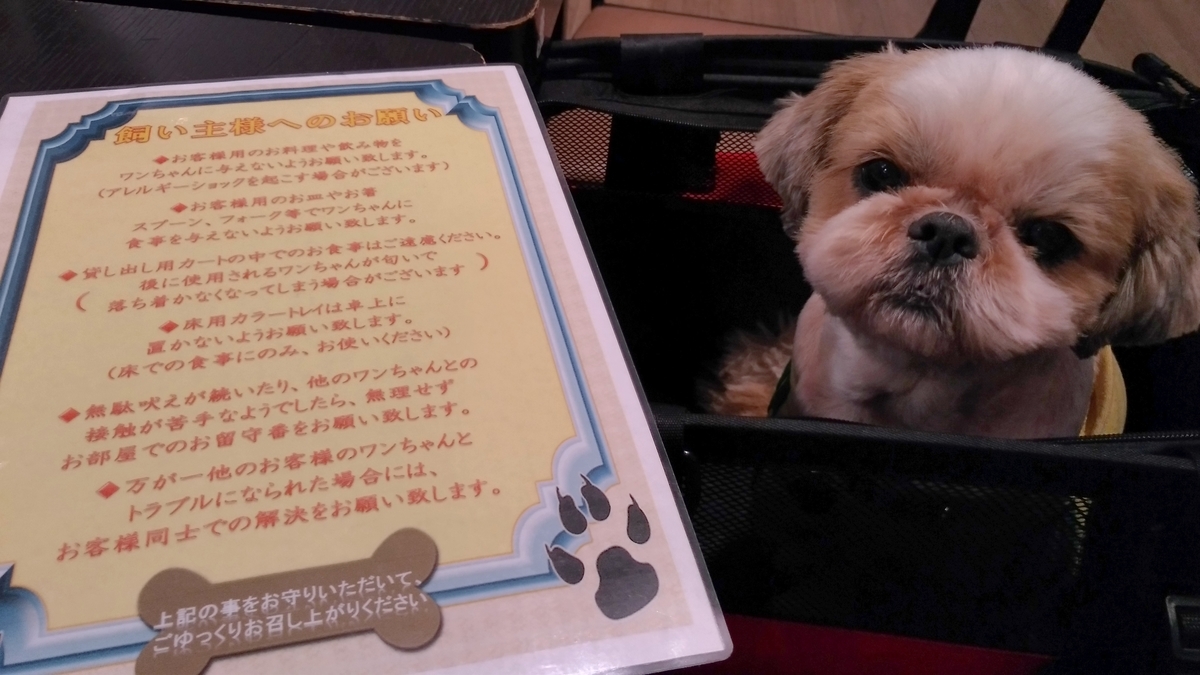 飼い主様へのお願い
◆お客様用のお料理や飲み物を
ワンちゃんに与えないようお願い致します。
(アレルギーショックを起こす場合がございます)
◆お客様用のお皿やお箸
スプーン、フォーク等でワンちゃんに
食事を与えないようお願い致します。
◆貸し出し用カートの中でのお食事はご遠慮ください。
(後に使用されるワンちゃんが匂いで
落ち着かなくなってしまう場合がございます)
◆床用カラートレイは卓上に
置かないようお願い致します。
(床での食事にのみ、お使いください)
◆無駄吠えが続いたり、他のワンちゃんとの
接触が苦手なようでしたら、無理せず
お部屋でのお留守番をお願い致します。
◆万が一他のお客様のワンちゃんと
トラブルになられた場合には、
お客様同士での解決をお願い致します。
上記の事をお守りいただいて、
ごゆっくりお召し上がりください